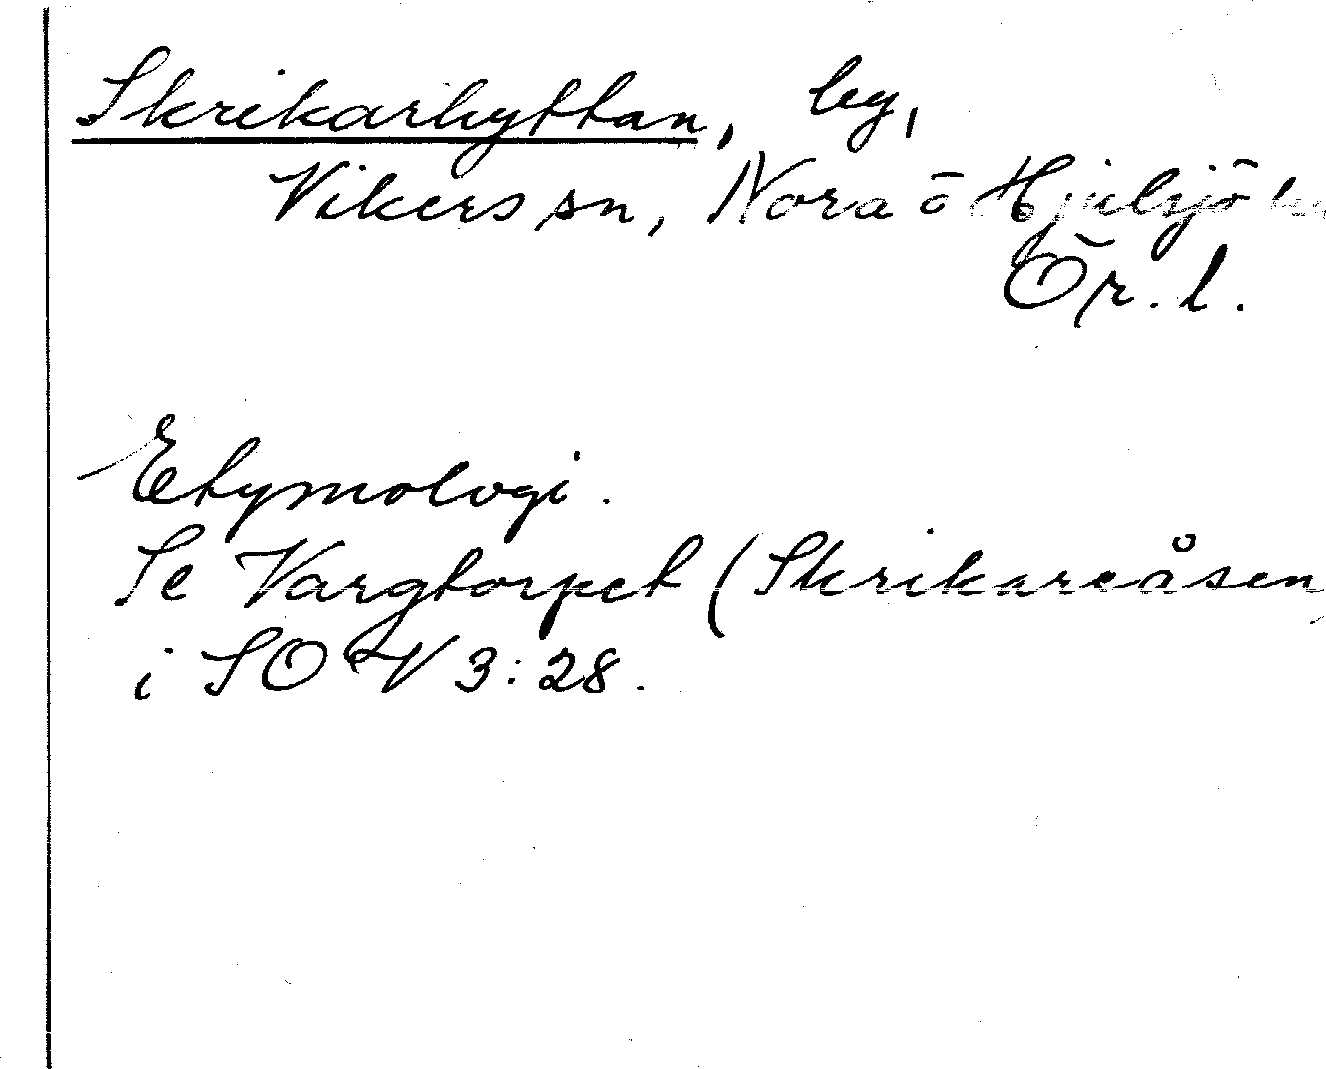 Skrikarhyttan, by,
Vikers sn, Nora o Hjulsjö
Ör. l.
Etymologi.
Se Vargtorpet (Skrikareåsen
i SOV 3:28.